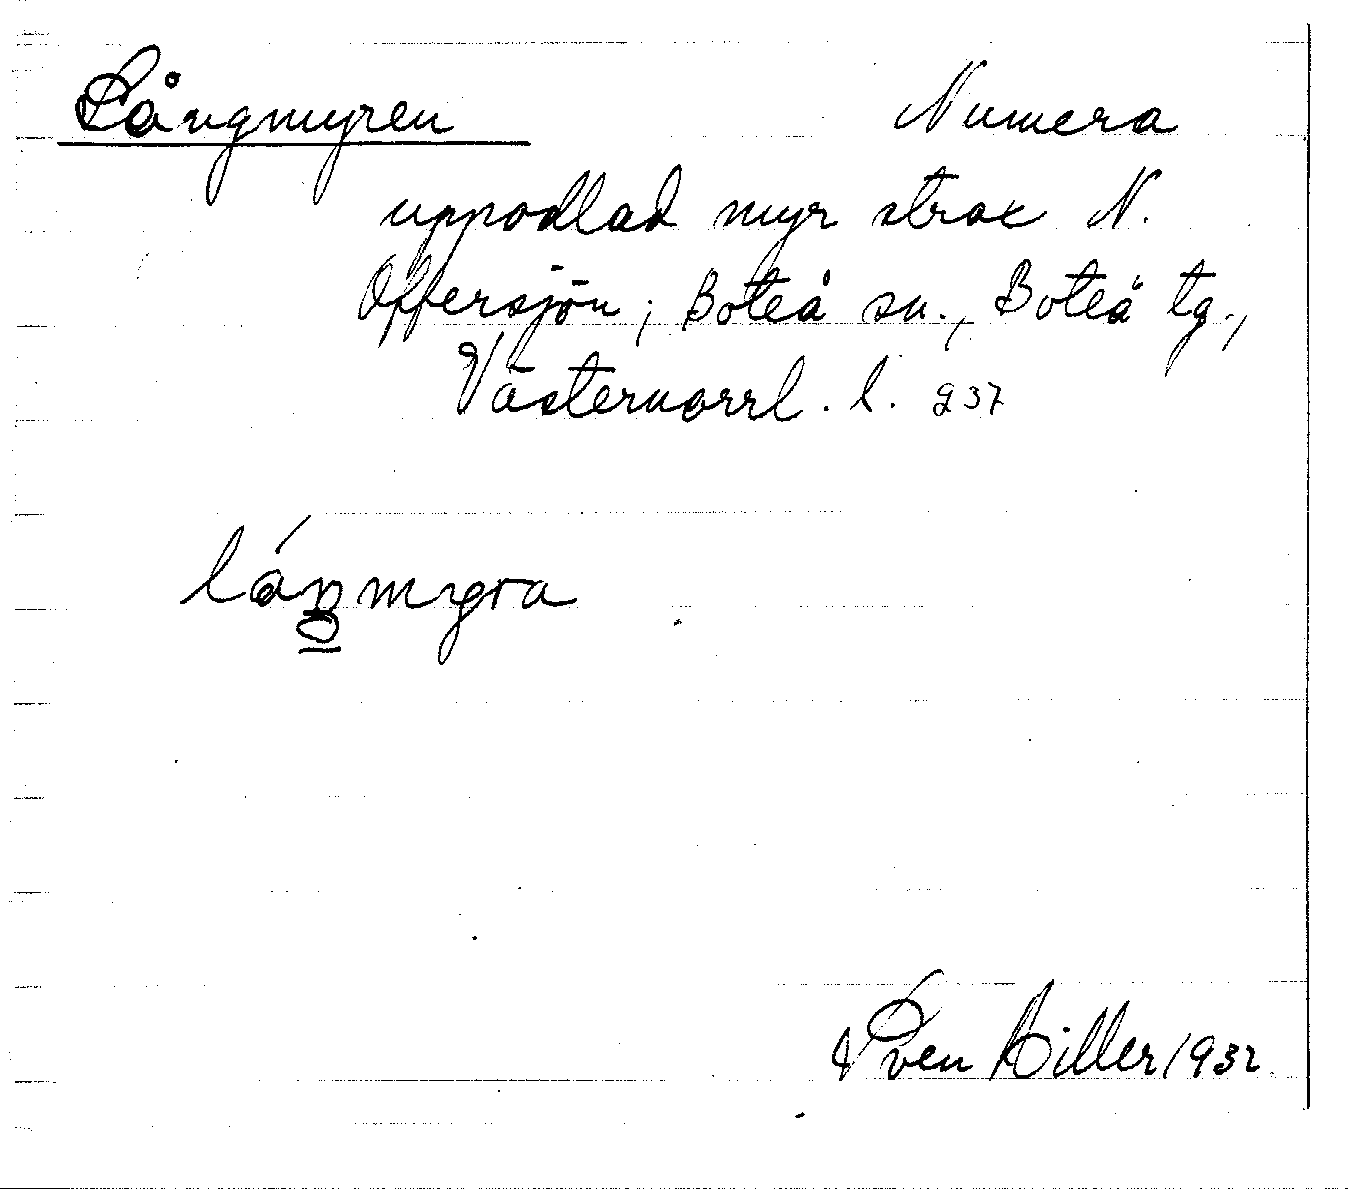 Långmyren Numera
uppodlad myr strax N.
Offersjön; Boteå sn., Boteå tg.,
Västernorrl. l. 237
Sven Hiller 1932